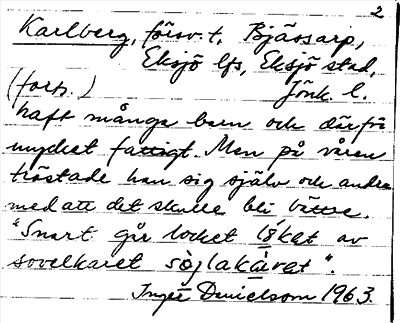 2
Karlberg, försv. t. Bjässarp,
Eksjö lfs, Eksjö stad,
(forts.) Jönk. l.
haft många barn och därför
mycket fattigt. Men på våren
tröstade han sig själv och andra
med att det skulle bli bättre.
"Snart går locket av
sovelkaret söjlakåret".
Inger Danielsson 1963.